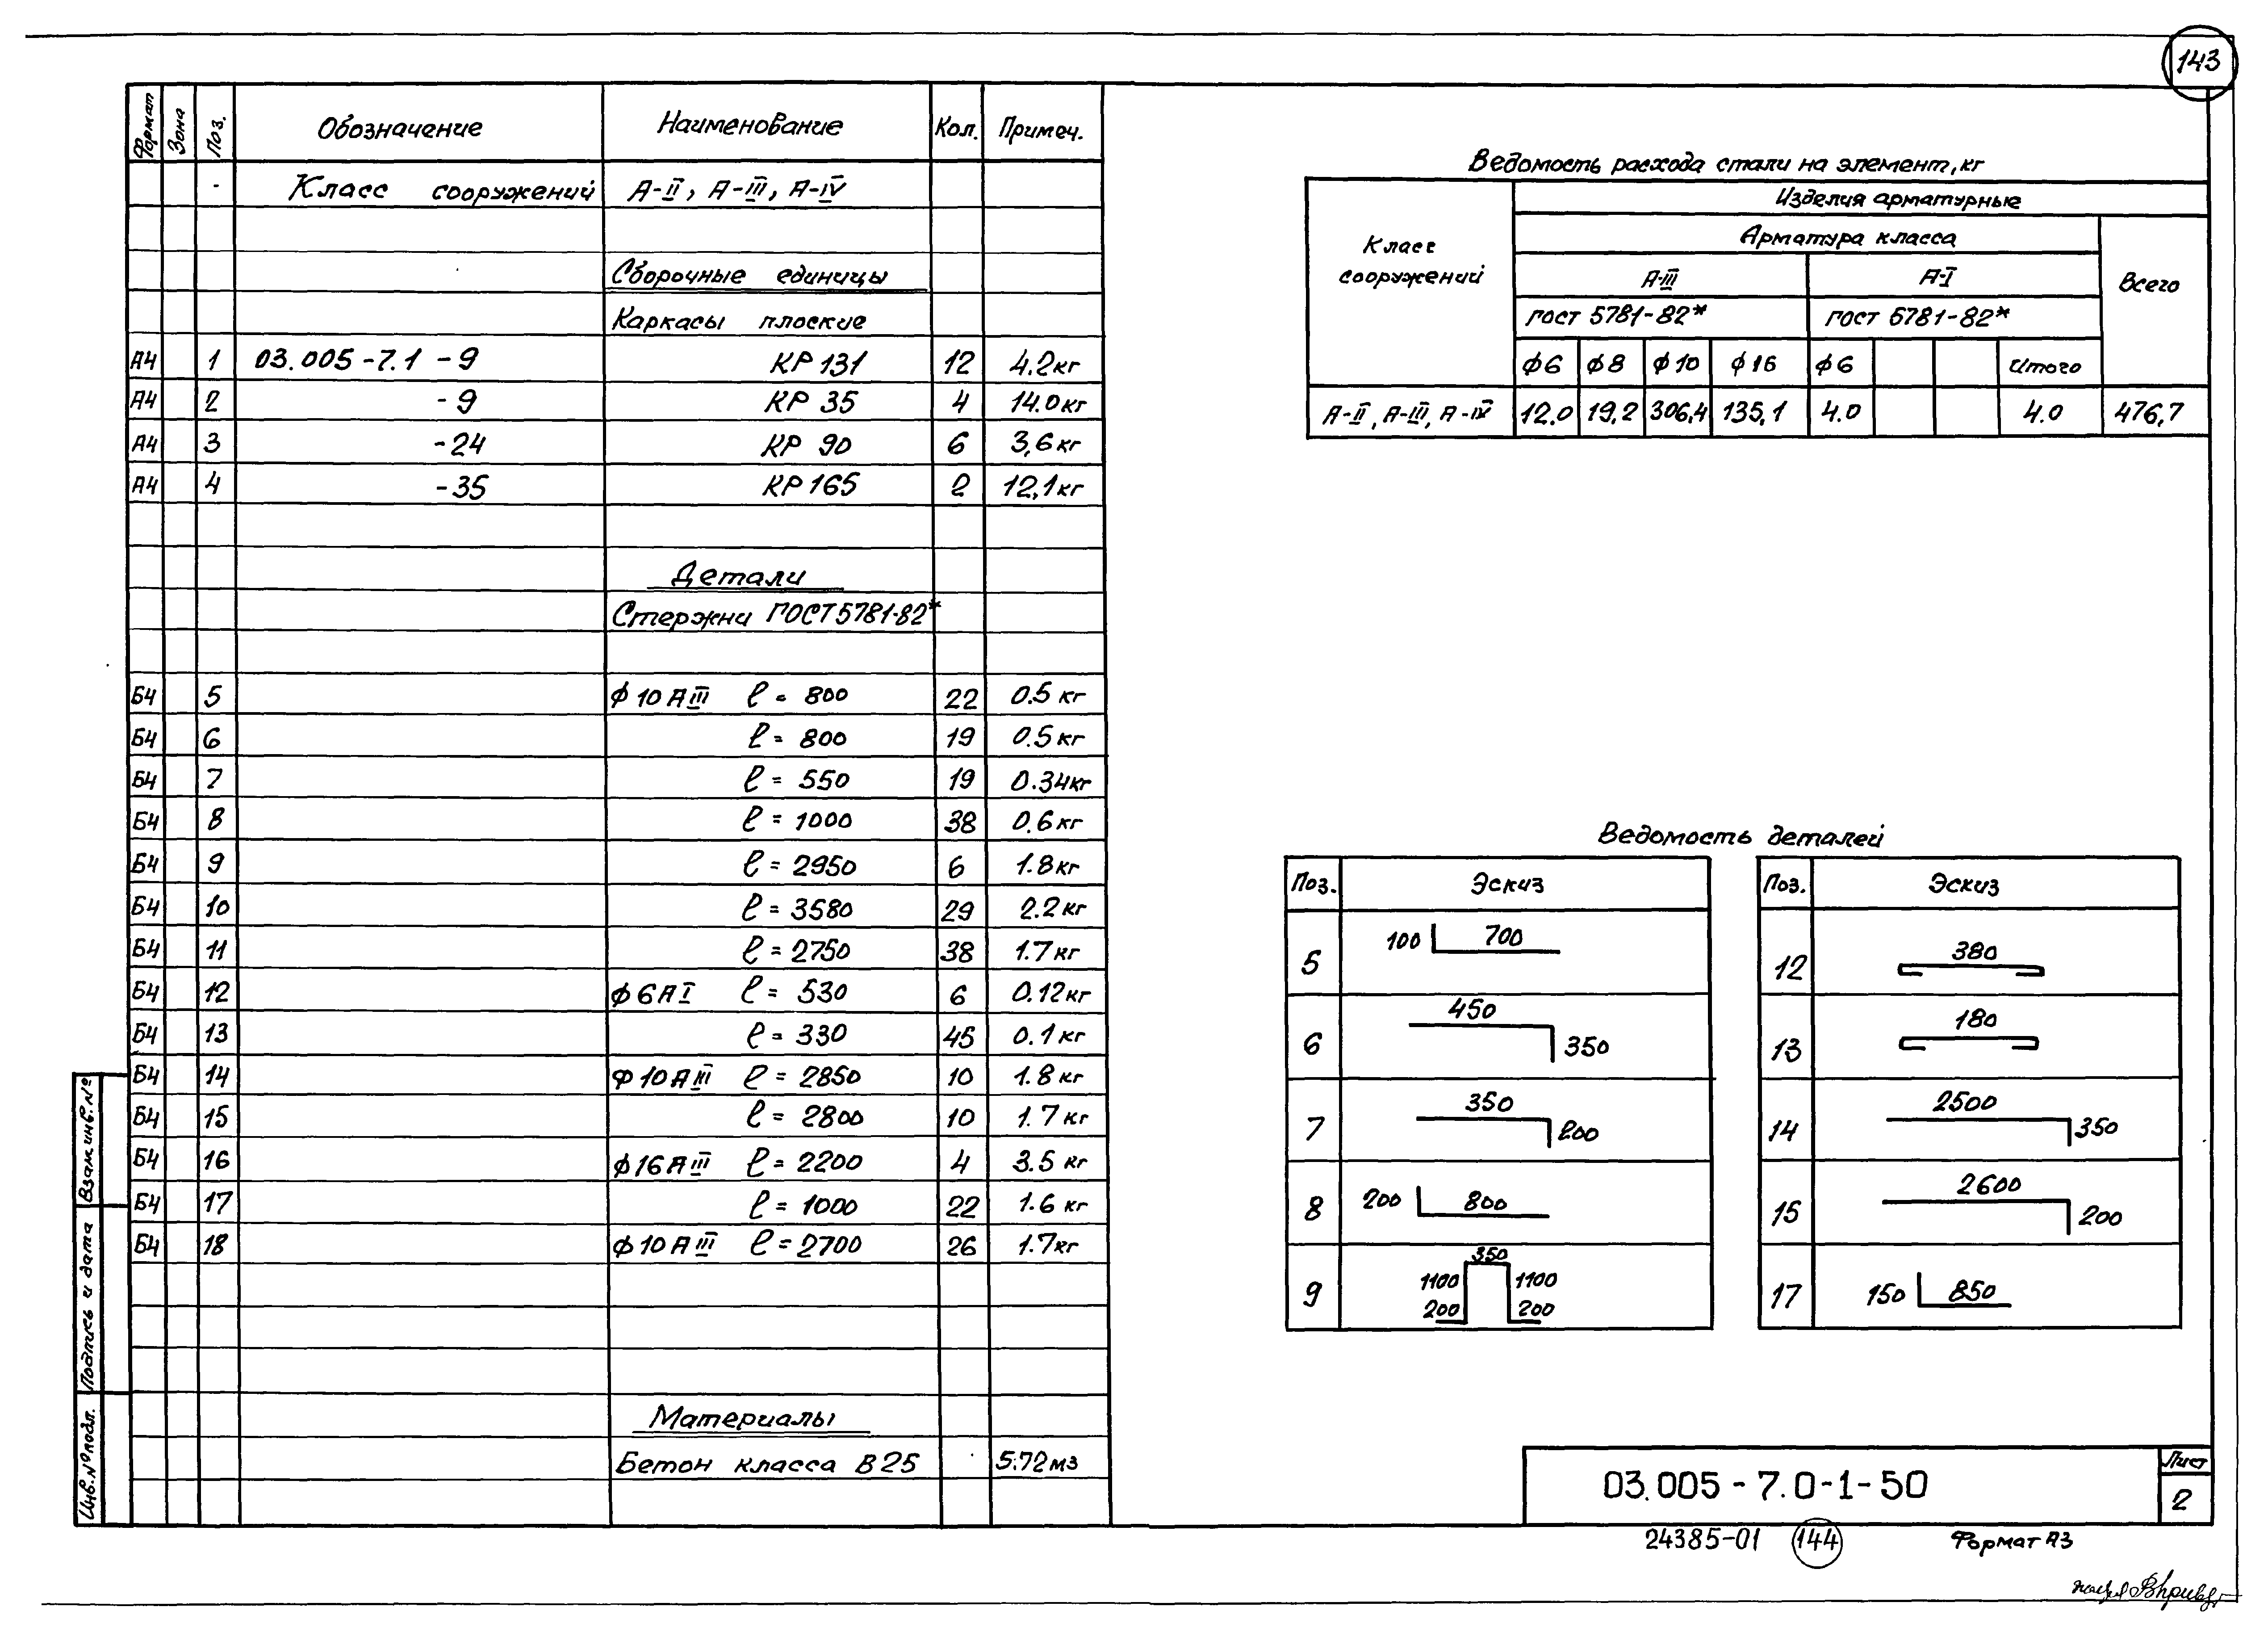 143
Формат Зона Поз. Обозначение Наименование Кол. Примеч.
Класс сооружений А-II, А-III, А-IV
Сборочные единицы
Каркасы плоские
А4 1 03.005-7.1 -9 КР 131 12 4.2кг
А4 2 -9 КР 35 4 14.0кг
А4 3 -24 КР 90 6 3,6кг
А4 4 -35 КР 165 2 12,1кг
Детали
Стержни ГОСТ 5781-82*
Б4 5 ф10АIII ℓ= 800 22 0.5 кг
Б4 6 ℓ= 800 19 0.5 кг
Б4 7 ℓ= 550 19 0.34кг
Б4 8 ℓ= 1000 38 0.6 кг
Б4 9 ℓ= 2950 6 1.8кг
Б4 10 ℓ= 3580 29 2.2 кг
Б4 11 ℓ= 2750 38 1.7 кг
Б4 12 ф6АI ℓ= 530 6 0.12кг
Б4 13 ℓ= 330 45 0.1 кг
Б4 14 ф10АIII ℓ= 2850 10 1.8 кг
Б4 15 ℓ= 2800 10 1.7 кг
Б4 16 ф16АIII ℓ= 2200 4 3.5 кг
Б4 17 ℓ= 1000 22 1.6 кг
Б4 18 ф10АIII ℓ=2700 26 1.7кг
Материалы
Бетон класса В25 5.72м3
Взам.инв.№
Подпись и дата
Инв.№подл.
Ведомость расхода стали на элемент, кг
Класс сооружений
Изделия арматурные
Арматура класса
Всего
А-III А-I
гост 5781-82* гост 5781-82*
ф6 ф8 ф10 ф16 ф6 Итого
А-II, А-III, А-IV 12.0 19,2 306,4 135,1 4.0 4.0 476,7
Ведомость деталей
Поз. Эскиз
5 100 700
6 450 350
7 350 200
8 200 800
9 350 1100 1100 200 200
Поз. Эскиз
12 380
13 180
14 2500 350
15 2600 200
17 150 850
03.005-7.0-1-50
Лист
2
24385-01 144 Формат А3